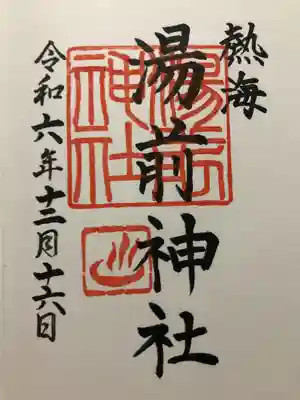 熱海
湯前神社
令和六年十二月十六日
湯前神社